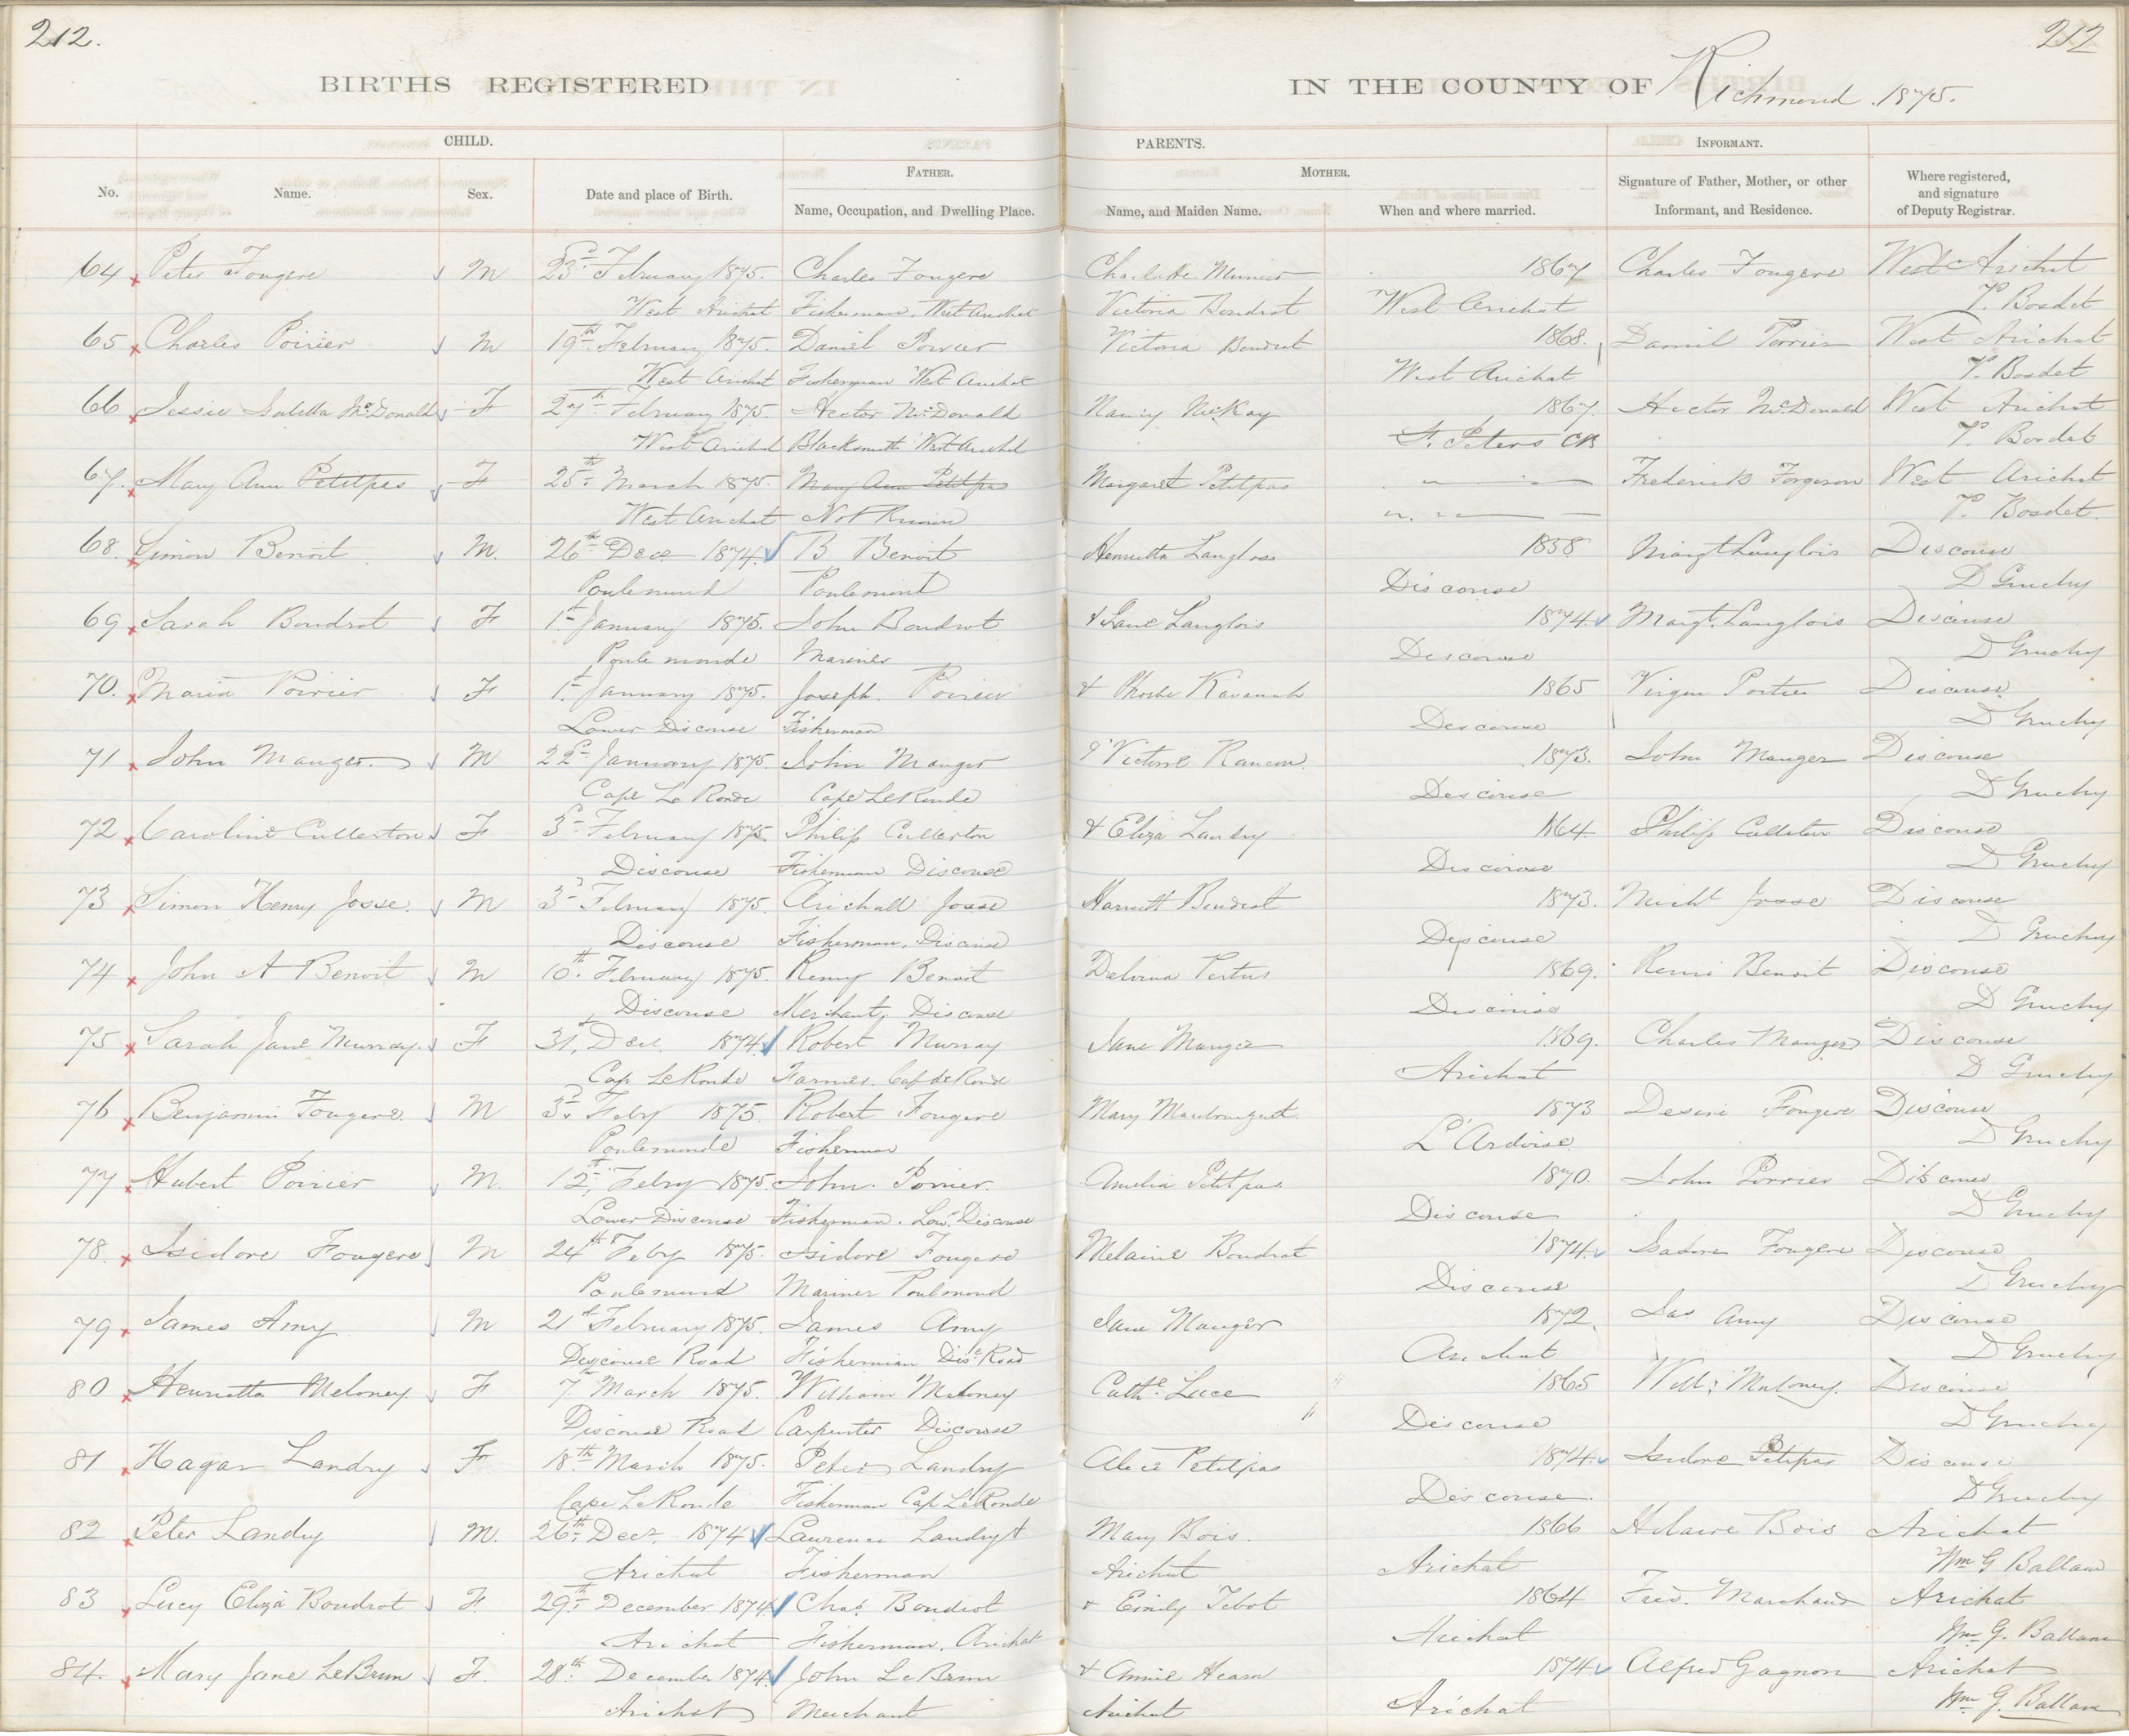 212. 212
BIRTHS REGISTERED IN THE COUNTY OF Richmond 1875.
CHILD. PARENTS. INFORMANT.
FATHER. MOTHER.
No. Name. Sex. Date and place of Birth. Name, Occupation, and Dwelling Place. Name, and Maiden Name. When and where married. Signature of Father, Mother, or other Informant, and Residence. Where registered, and signature of Deputy Registrar.
64 Peter Fougere M 23d February 1875. Charles Fougere Charlotte 1867 Charles Fougere West Arichat
West Arichat Fisherman, West Arichat Victoria Boudrot West Arichat P. Bosdet
65 Charles Poirier M 19th February 1875. Daniel Poirier Victoria Boudrot 1868. Daniel Porrier West Arichat
West Arichat Fisherman West Arichat West Arichat P. Bosdet
66 Jessie Isabella McDonald F 27th February 1875. Hector McDonald Nancy McKay 1867. Hector McDonald West Arichat
West Arichat Blacksmith West Arichat St. Peters CB P. Bosdet
67. Mary Ann Petitpas F 25th March 1875. Mary Ann Petitpas Margaret Petitpas Frederick Forgeron West Arichat
West Arichat Not Known P. Bosdet.
68. Simon Benoit M. 26th Dece 1874. B Benoit Henrietta Langloss 1858 Margt Langlois Discouse
Poulemund Poulemont Discouse D Gruchy
69 Sarah Boudrot F 1st January 1875. John Boudrot & Jane Langlois 1874. Margt. Langlois Discouse
Poulemonde Mariner Discouse D Gruchy
70. Maria Poirier F 1st January 1875. Joseph Poirier & Phoebe Kavanah 1865 Virgin Portier Discouse
Lower Discouse Fisherman Descouse D Gruchy
71 John Mauger. M 22d January 1875. John Mauger & Victorie Rancon 1873. John Mauger Discouse
Cape Le Ronde Cape LeRonde Descouse D Gruchy
72 Caroline Cullerton F 3d February 1875. Philip Cullerton & Eliza Landry 1864. Philip Culleton Discouse
Discouse Fisherman Discouse Discouse D Gruchy
73 Simon Henry Josse. M 3d February 1875. Arichall Josse Harriett Boudrot 1873. Michl Josse Discouse
Discouse Fisherman, Discouse Discouse D Gruchy
74 John A Benoit M 10th February 1875. Remy Benoit Delvina Pertus 1869. Remi Benoit Discouse
Discouse Merchant, Discouse Discouse D Gruchy
75 Sarah Jane Murray. F 31st Dec. 1874. Robert Murray Jane Mauger 1869. Charles Mauger Discouse
Cap LeRonde Farmer. Cap deRonde Arichat D Gruchy
76 Benjamin Fougere. M 3d Feby 1875. Robert Fougere Mary 1873 Desire Fougere Discouse
Poulemonde Fisherman L'Ardoise D Gruchy
77 Hubert Poirier M. 12th Feby 1875. John Poirier. Amelia Petitpas 1870. John Porrier Discouse
Lower Discouse Fisherman. Lowr. Discouse Discouse D Gruchy
78. Isidore Fougere M 24th Feby 1875. Isidore Fougere Melaine Boudrot 1874. Isadore Fougere Discouse
Poulemund Mariner Poulmond Discouse D Gruchy
79 James Amy M 21st February 1875. James Amy Jane Mauger 1872. Jas Amy Discouse
Discouse Road Fisherman Disc. Road Arichat D Gruchy
80 Henrietta Meloney F 7th March 1875. William Meloney Cathe. Luce 1865 Will: Maloney. Discouse
Discouse Road Carpenter Discouse Discouse D Gruchy
81 Hagar Landry F 18th March 1875. Peter Landry Alice Petitpas 1874. Isidore Petitpas Discouse
Cape LeRonde Fisherman Cap LeRonde Discouse. D Gruchy
82 Peter Landry M. 26th Decr. 1874 Laurence Landry & Mary Bois. 1866 Hilaire Bois Arichat
Arichat Fisherman Arichat Arichat Wm G Ballam
83 Lucy Eliza Boudrot F. 29th December 1874 Chas. Boudrot & Emily Tebot 1864 Fred. Marchand Arichat
Arichat Fisherman, Arichat Arichat Wm G. Ballam
84. Mary Jane LeBrun F. 28th December 1874. John LeBrun & Annie Hearn 1874. Alfred Gagnon Arichat
Arichat Merchant Arichat Arichat Wm G. Ballam